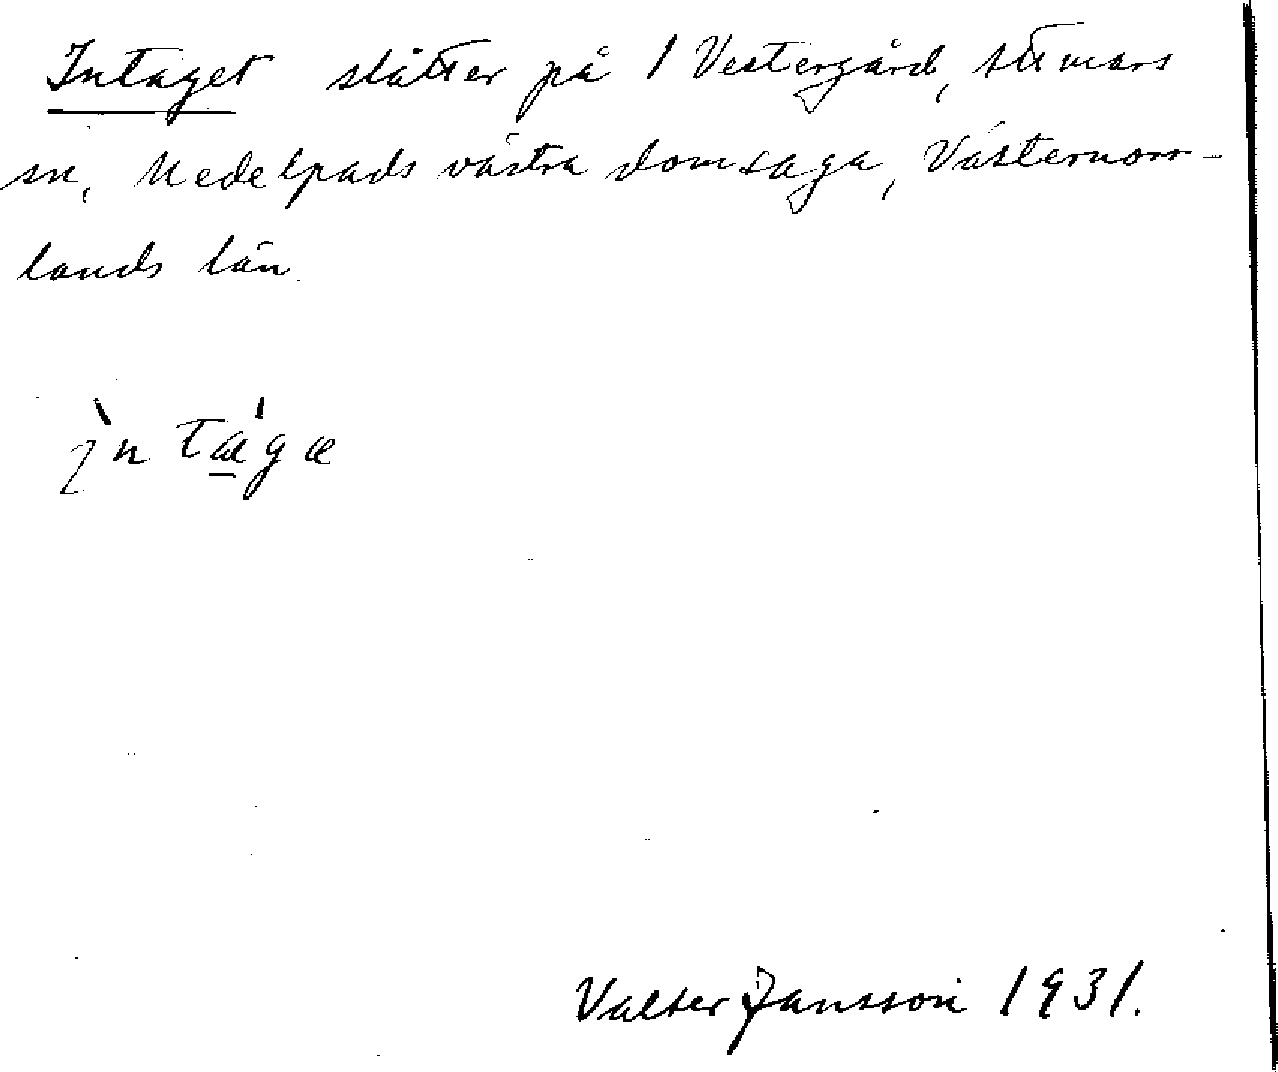 Intaget slåtter på 1 Vestergård, Attmars
sn, Medelpads västra domsaga, Västernorr-
lands län.
ı̀n tǽ̱gæ
Valter Jansson 1931.